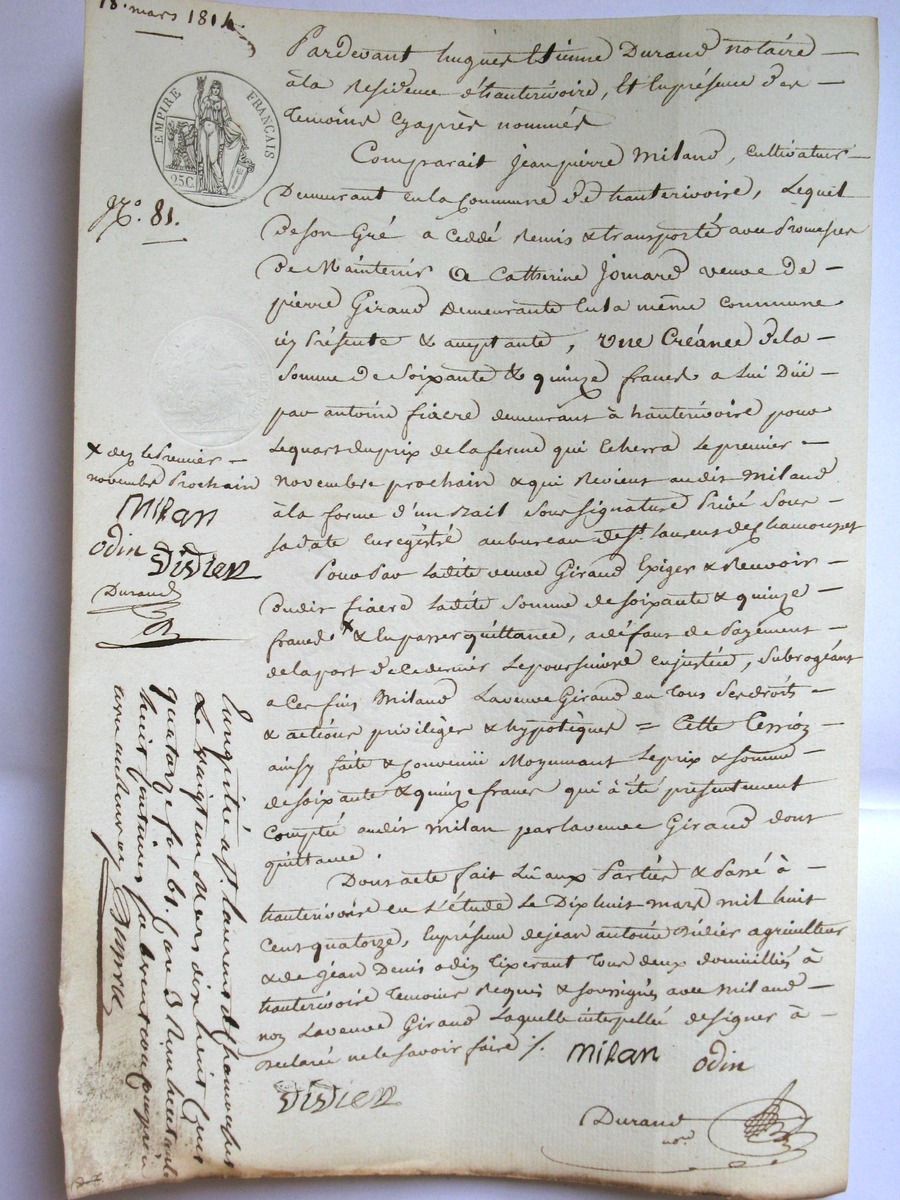 18. mars 1814
EMPIRE FRANÇAIS
25C.
No. 81.
Pardevant hugues Etienne Durand notaire
à la Residence d'hauterivoire, Et En présence des
Temoins Cyaprès nommés
Comparait Jean pierre Miland, cultivateur
Demeurant en la Commune d'hauterivoire, Lequel
De son Gré a Ceddé Remis & transporté avec Promesses
De Maintenir a Catherine Jomard veuve de
pierre Giraud Demeurante En la même commune
icy Présente & acceptante, une Créance de la
Somme De Soixante & quinze francs a Lui Düe
par antoine fiacre demeurant à hauterivoire pour
Le quart du prix de la ferme qui Echerra Le premier
Novembre prochain & qui Revient audit Miland
à la forme d'un Bail Sous Signature Privé Sous
sa date Enregistré au bureau de St. Laurens de Chamousset
Pour Par Ladite veuve Giraud Exiger & Recevoir
dudit fiacre Ladite Somme de soixante & quinze
francs x & En passer quittance, a défaut de Payement
de la part de Ce dernier Le poursuivre en justice, Subrogeant
a Ces fins Miland La veuve Giraud en Tous Ses droits
& actions privilèges & hypotèques = Cette Cession
ainsy faite & Convenüe Moyennant Le prix & somme
de soixante & quinze francs qui a été présentement
Compté audit milan par la veuve Giraud dont
quittance.
Dont acte fait Lû aux Parties & Passé à
hauterivoire en L'étude Le Dix huit mars mil huit
Cent quatorze, En présence de jean antoine Didier agriculteur
& de Jean Denis odin Tixerant Tous deux domiciliés à
hauterivoire Temoins Requis & soussignés avec Miland
non La veuve Giraud Laquelle interpellée de signer à
Déclaré ne le savoir faire ./.
milan
odin
Didier
Durand
nre
x dez le Premier
novembre Prochain
Milan
odin Didier
Durand
Enregistré a St. Laurent de Chamousset
Le vingt un Mars dix huit Cent
quatorze fol. 61.
huit